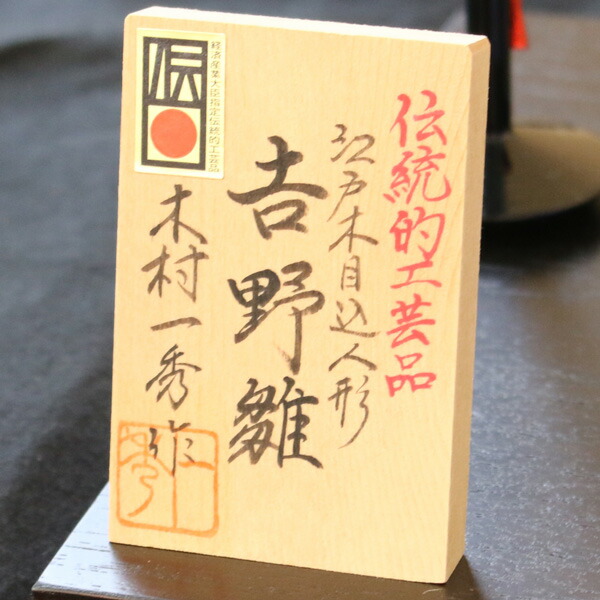 伝統的工芸品
江戸木目込人形
吉野雛
木村一秀作
伝
経済産業大臣指定伝統的工芸品